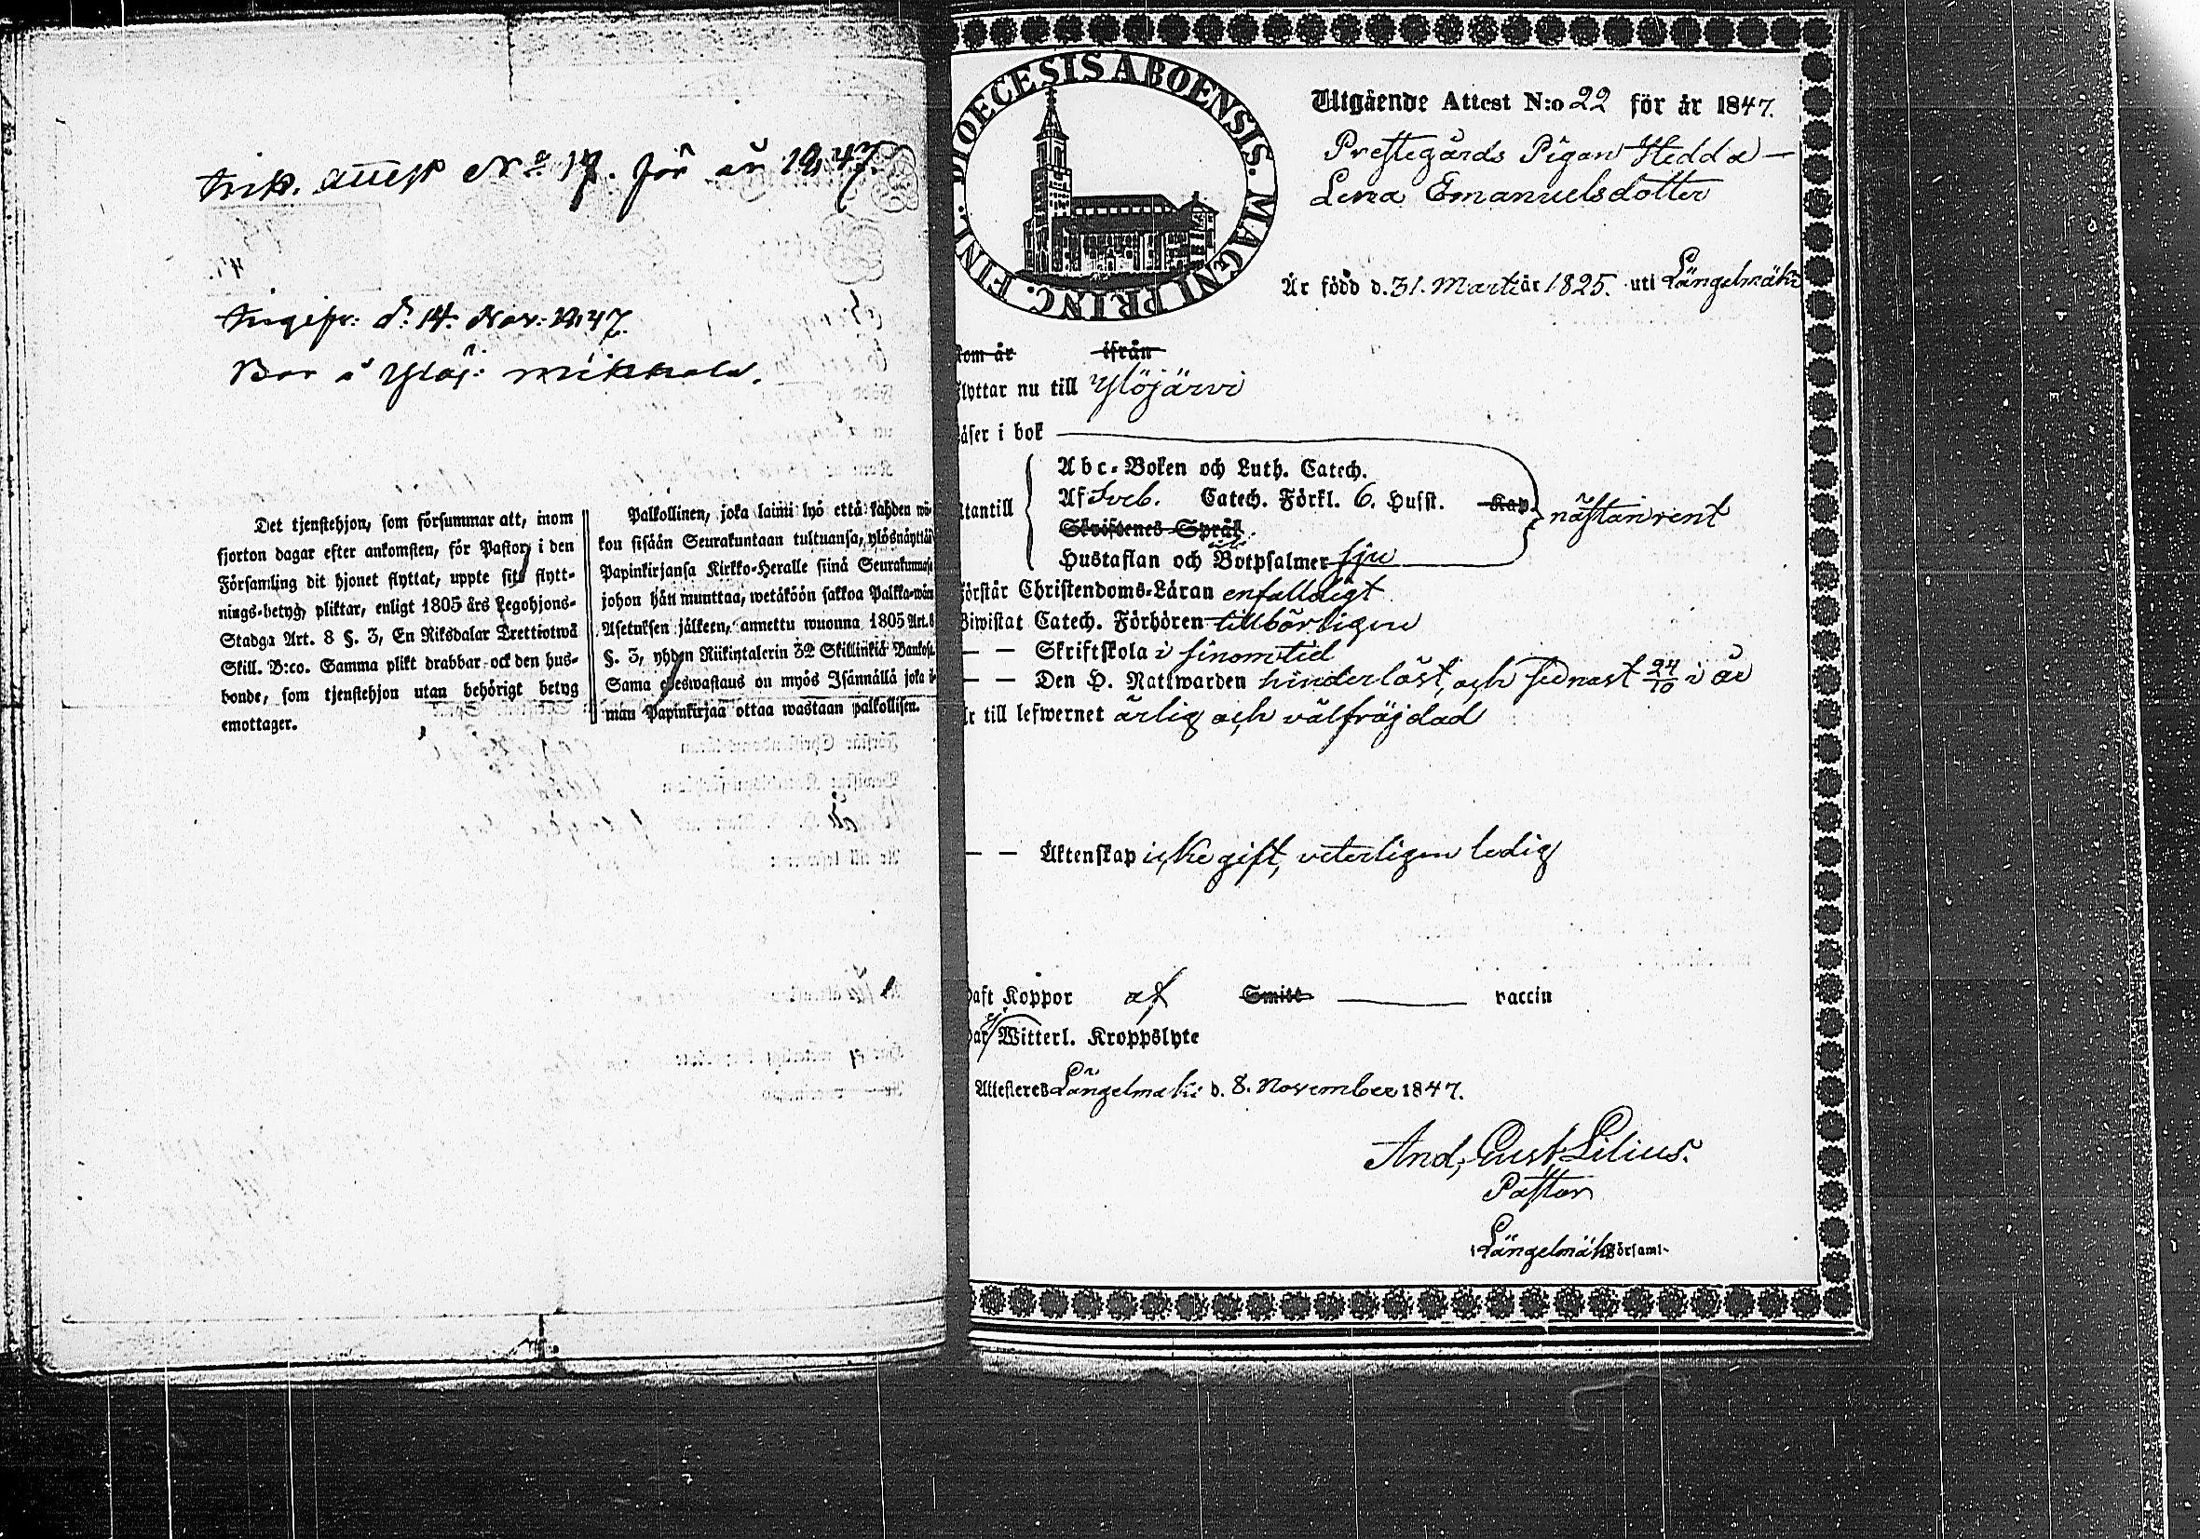 attest No 17. för år 1847.
d. 14. Nov. 1847.
Bor å Ylöj: Mikkola.
Det tjenstehjon, som försummar att, inom
fjorton dagar efter ankomsten, för Pastor i den
Församling dit hjonet flyttat, uppte sitt flytt-
nings-betyg, pliktar, enligt 1805 års Legohjons-
Stadga Art. 8 §. 3, En Riksdalar Trettiotwå
Skill. B:co. Samma plikt drabbar ock den hus-
bonde, som tjenstehjon utan behörigt betyg
emottager.
Palkollinen, joka laimi lyö että kahden wii-
kon sisään Seurakuntaan tultuansa, ylösnäyttää
Papinkirjansa Kirkko-Herralle siinä Seurakunnassa
johon hän munttaa, wetäköön sakkoa Palkka-wäen
Asetuksen jälkeen, annettu wuonna 1805 Art. 8
§. 3, yhden Riikintalerin 32 Skillinkiä Bankosa.
Sama edeswastaus on myös Isännällä joka il-
man Papinkirjaa ottaa wastaan palkollisen.
DIOECESIS ABOENSIS. MAGNI PRINC. FINL.
Utgående Attest N:o 22 för år 1847.
Prestegårds Pigan Hedda
Lena Emanuelsdotter
Är född d. 31. Martii år 1825. uti Längelmäki
som är ifrån
flyttar nu till Ylöjärvi
läser i bok
Utantill
Abc-Boken och Luth. Catech.
Af Sveb. Catech. Förkl. 6. Hufst. Kap. nästan rent
Skriftenes Språk
Hustaflan och Botpsalmer sju
förstår Christendoms-Läran enfalldigt
Biwistat Catech. Förhören tillbörligen
— — Skriftskola i sinom tid
— — Den H. Nattwarden hinderlöst, och sednast 24/10 i år
Är till lefwernet ärlig och välfräjdad
— — Äktenskap icke gift, veterligen ledig
Haft Koppor af Smitt vaccin
Har ej Witterl. Kroppslyte
Attesteres Längelmäki d. 8. November 1847.
And. Gust. Lilius.
Pastor
i Längelmäki Församl.